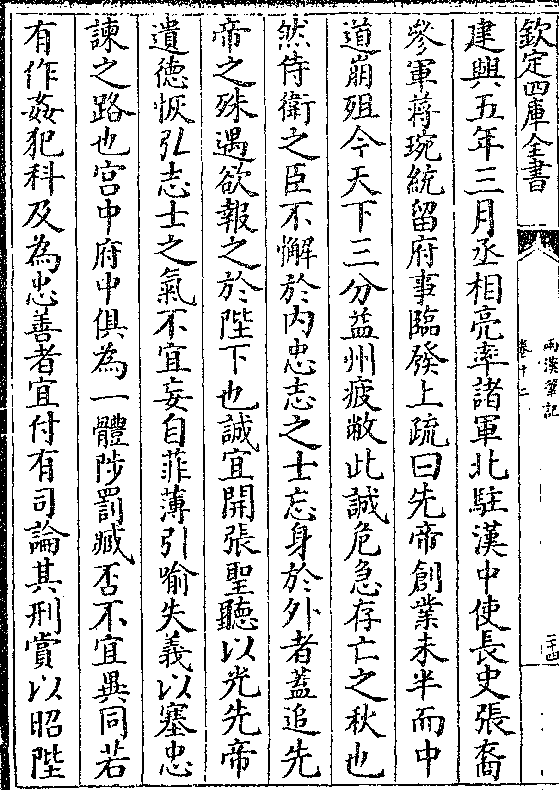 欽定四庫全書
兩漢筆記
卷十二
二十四
建興五年三月丞相亮率諸軍北駐漢中使長史張裔
參軍蔣琬統留府事臨發上疏曰先帝創業未半而中
道崩殂今天下三分益州疲敝此誠危急存亡之秋也
然侍衛之臣不懈於内忠志之士忘身於外者蓋追先
帝之殊遇欲報之於陛下也誠宜開張聖聽以光先帝
遺德恢弘志士之氣不宜妄自菲薄引喻失義以塞忠
諫之路也宫中府中俱為一體陟罰臧否不宜異同若
有作姦犯科及為忠善者宜付有司論其刑賞以昭陛